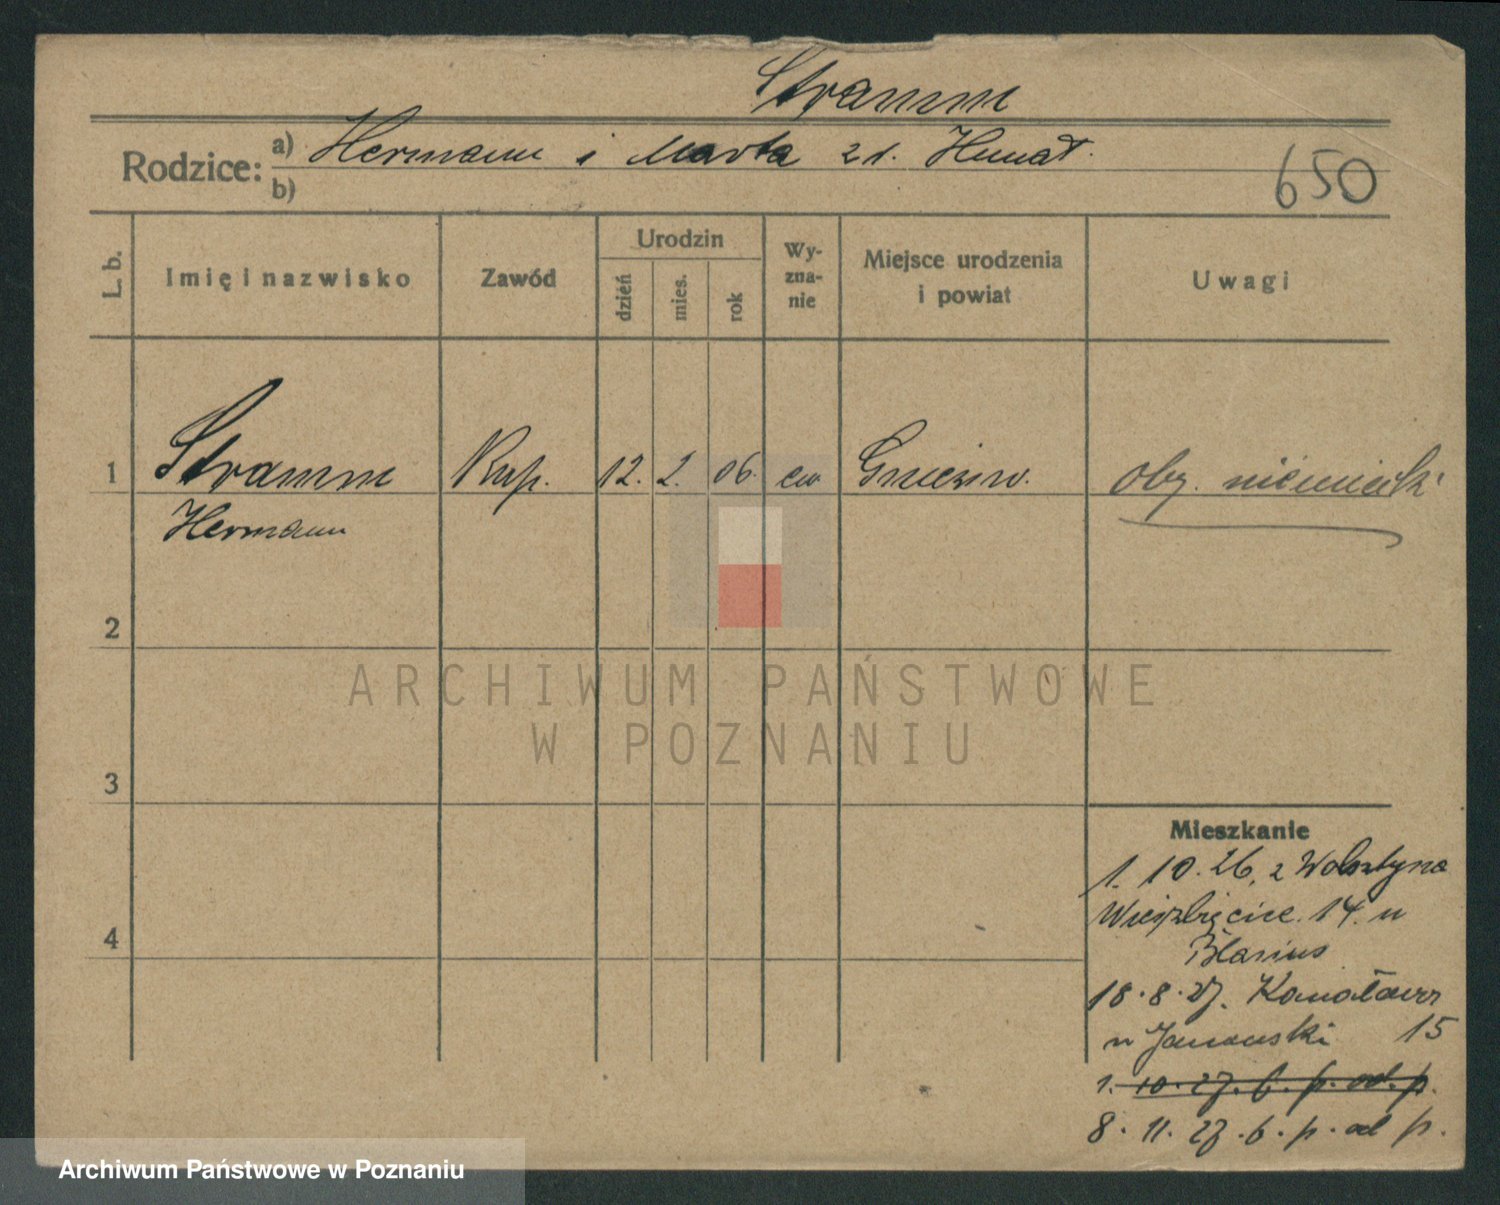 Stramm
Rodzice: a) Hermann i Marta z d. Hunat.
b)
650
L. b.
Imię i nazwisko
Zawód
Urodzin
dzień
mies.
rok
Wy-
zna-
nie
Miejsce urodzenia
i powiat
Uwagi
1 Stramm Kup. 12. 2. 06. ew Gniezno. oby. niemiecki
Hermann
2
3
4
ARCHIWUM PAŃSTWOWE
W POZNANIU
Mieszkanie
1. 10. 26, z Wolsztyna
Wierzbięcice. 14. u
Blasius
18. 8. 27.
u Janowski 15
1. 10. 27. 6. p. od. p.
8. 11. 27. 6. p. od p.
Archiwum Państwowe w Poznaniu